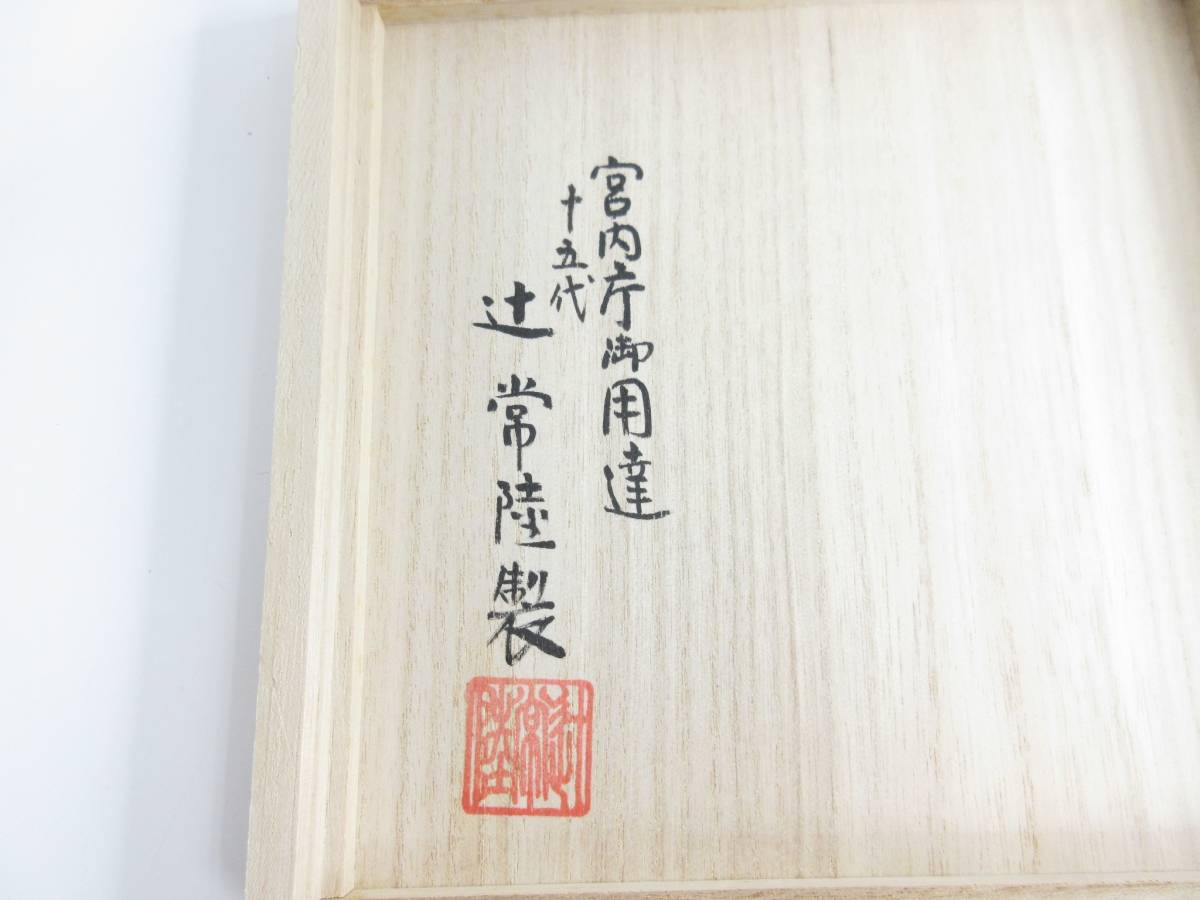 宮内庁御用達
十五代
辻常陸製
辻常陸